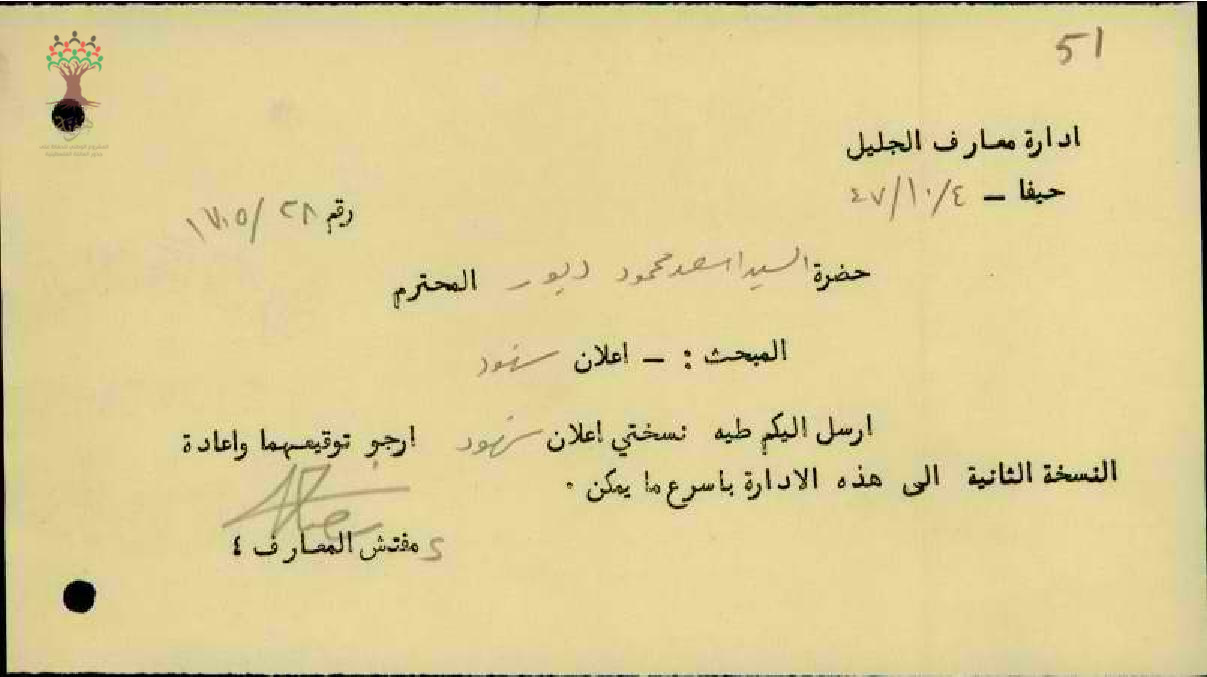 51
ادارة معارف الجليل
حيفا - ٤/١٠/٤٧
رقم ٢٨/
حضرة السيد اسعد محمود المحترم
المبحث : - اعلان
ارسل اليكم طيه نسختي اعلان ارجو توقيعهما واعادة
النسخة الثانية الى هذه الادارة باسرع ما يمكن ٠
مفتش المعارف ٤